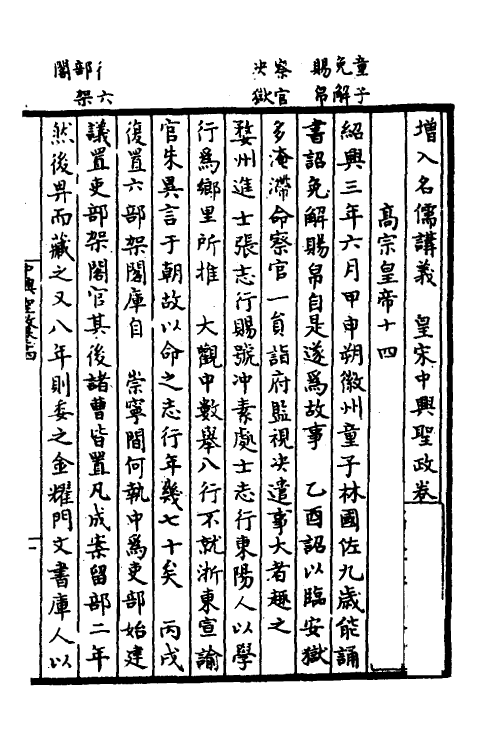 童子
免解
賜帛
察官
决獄
行六
部架
閣
增入名儒講義　皇宋中興聖政卷
高宗皇帝十四
紹興三年六月甲申朔徽州童子林國佐九歲能誦
書詔免解賜帛自是遂爲故事　乙酉詔以臨安獄
多淹滯命察官一員詣府監視决遣事大者趣之
婺州進士張志行賜號冲素處士志行東陽人以學
行爲鄉里所推　大觀中數舉八行不就浙東宣諭
官朱異言于朝故以命之志行年幾七十矣　丙戌
復置六部架閣庫自　崇寧間何執中爲吏部始建
議置吏部架閣官其後諸曹皆置凡成案留部二年
然後畀而藏之又八年則委之金耀門文書庫人以
中興聖政卷十四
一